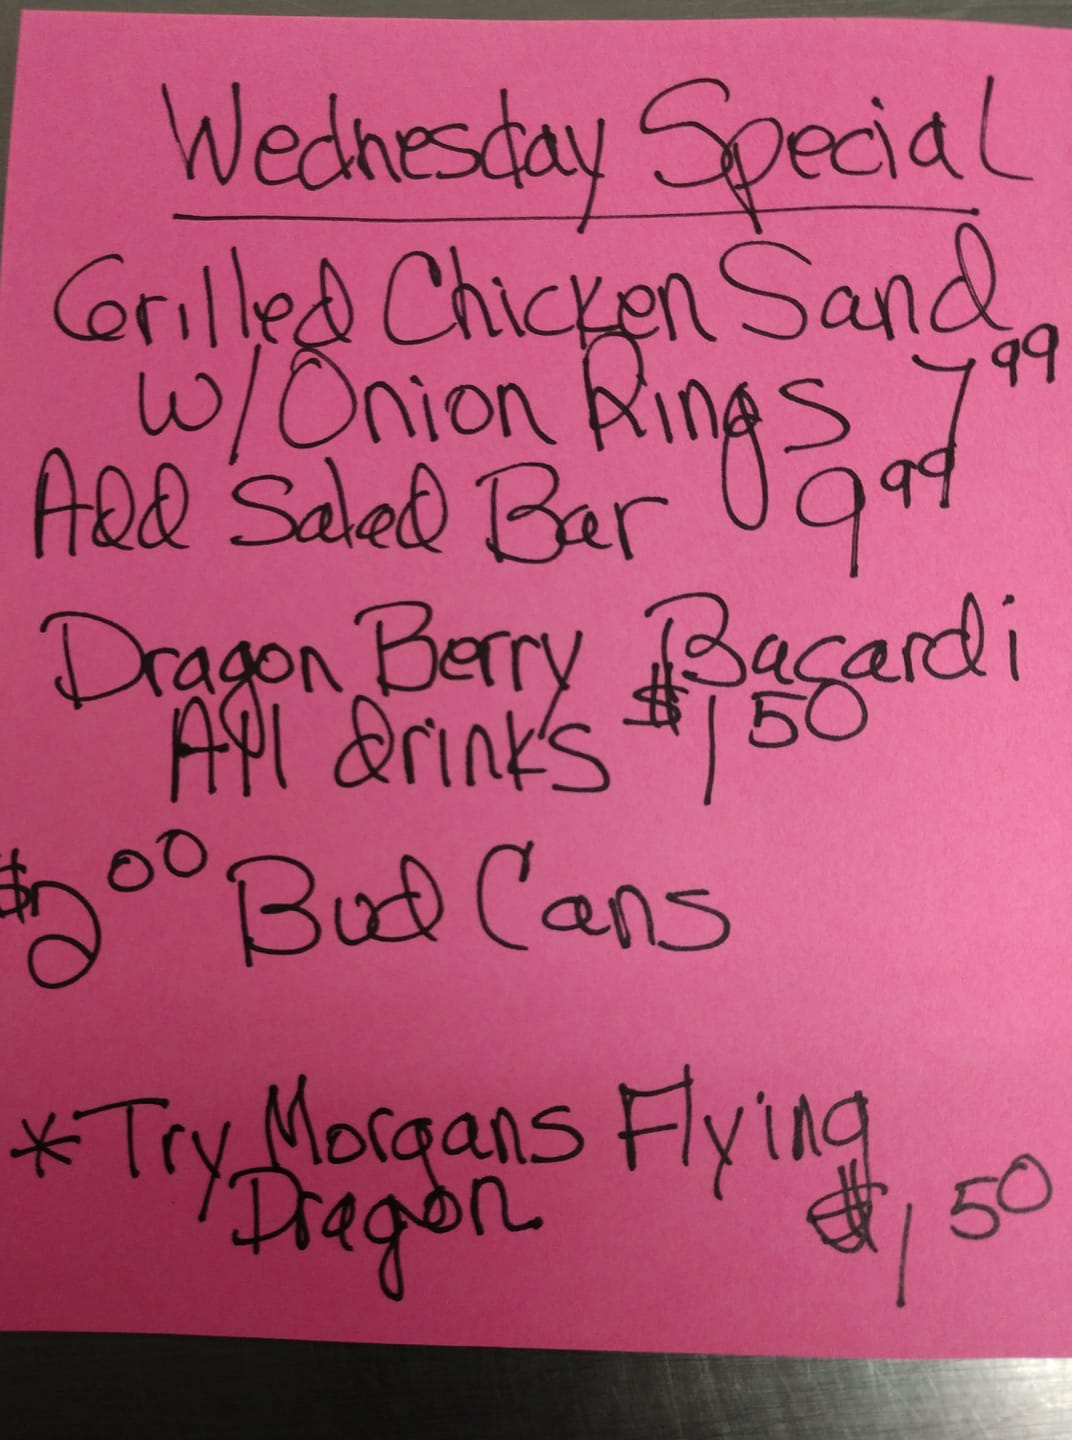 Wednesday Special
Grilled Chicken Sand
w/ Onion Rings 7.99
Add Salad Bar 9.99
Dragon Berry Bacardi
All drinks $1.50
$2.00 Bud Cans
*Try Morgans Flying
Dragon $1.50